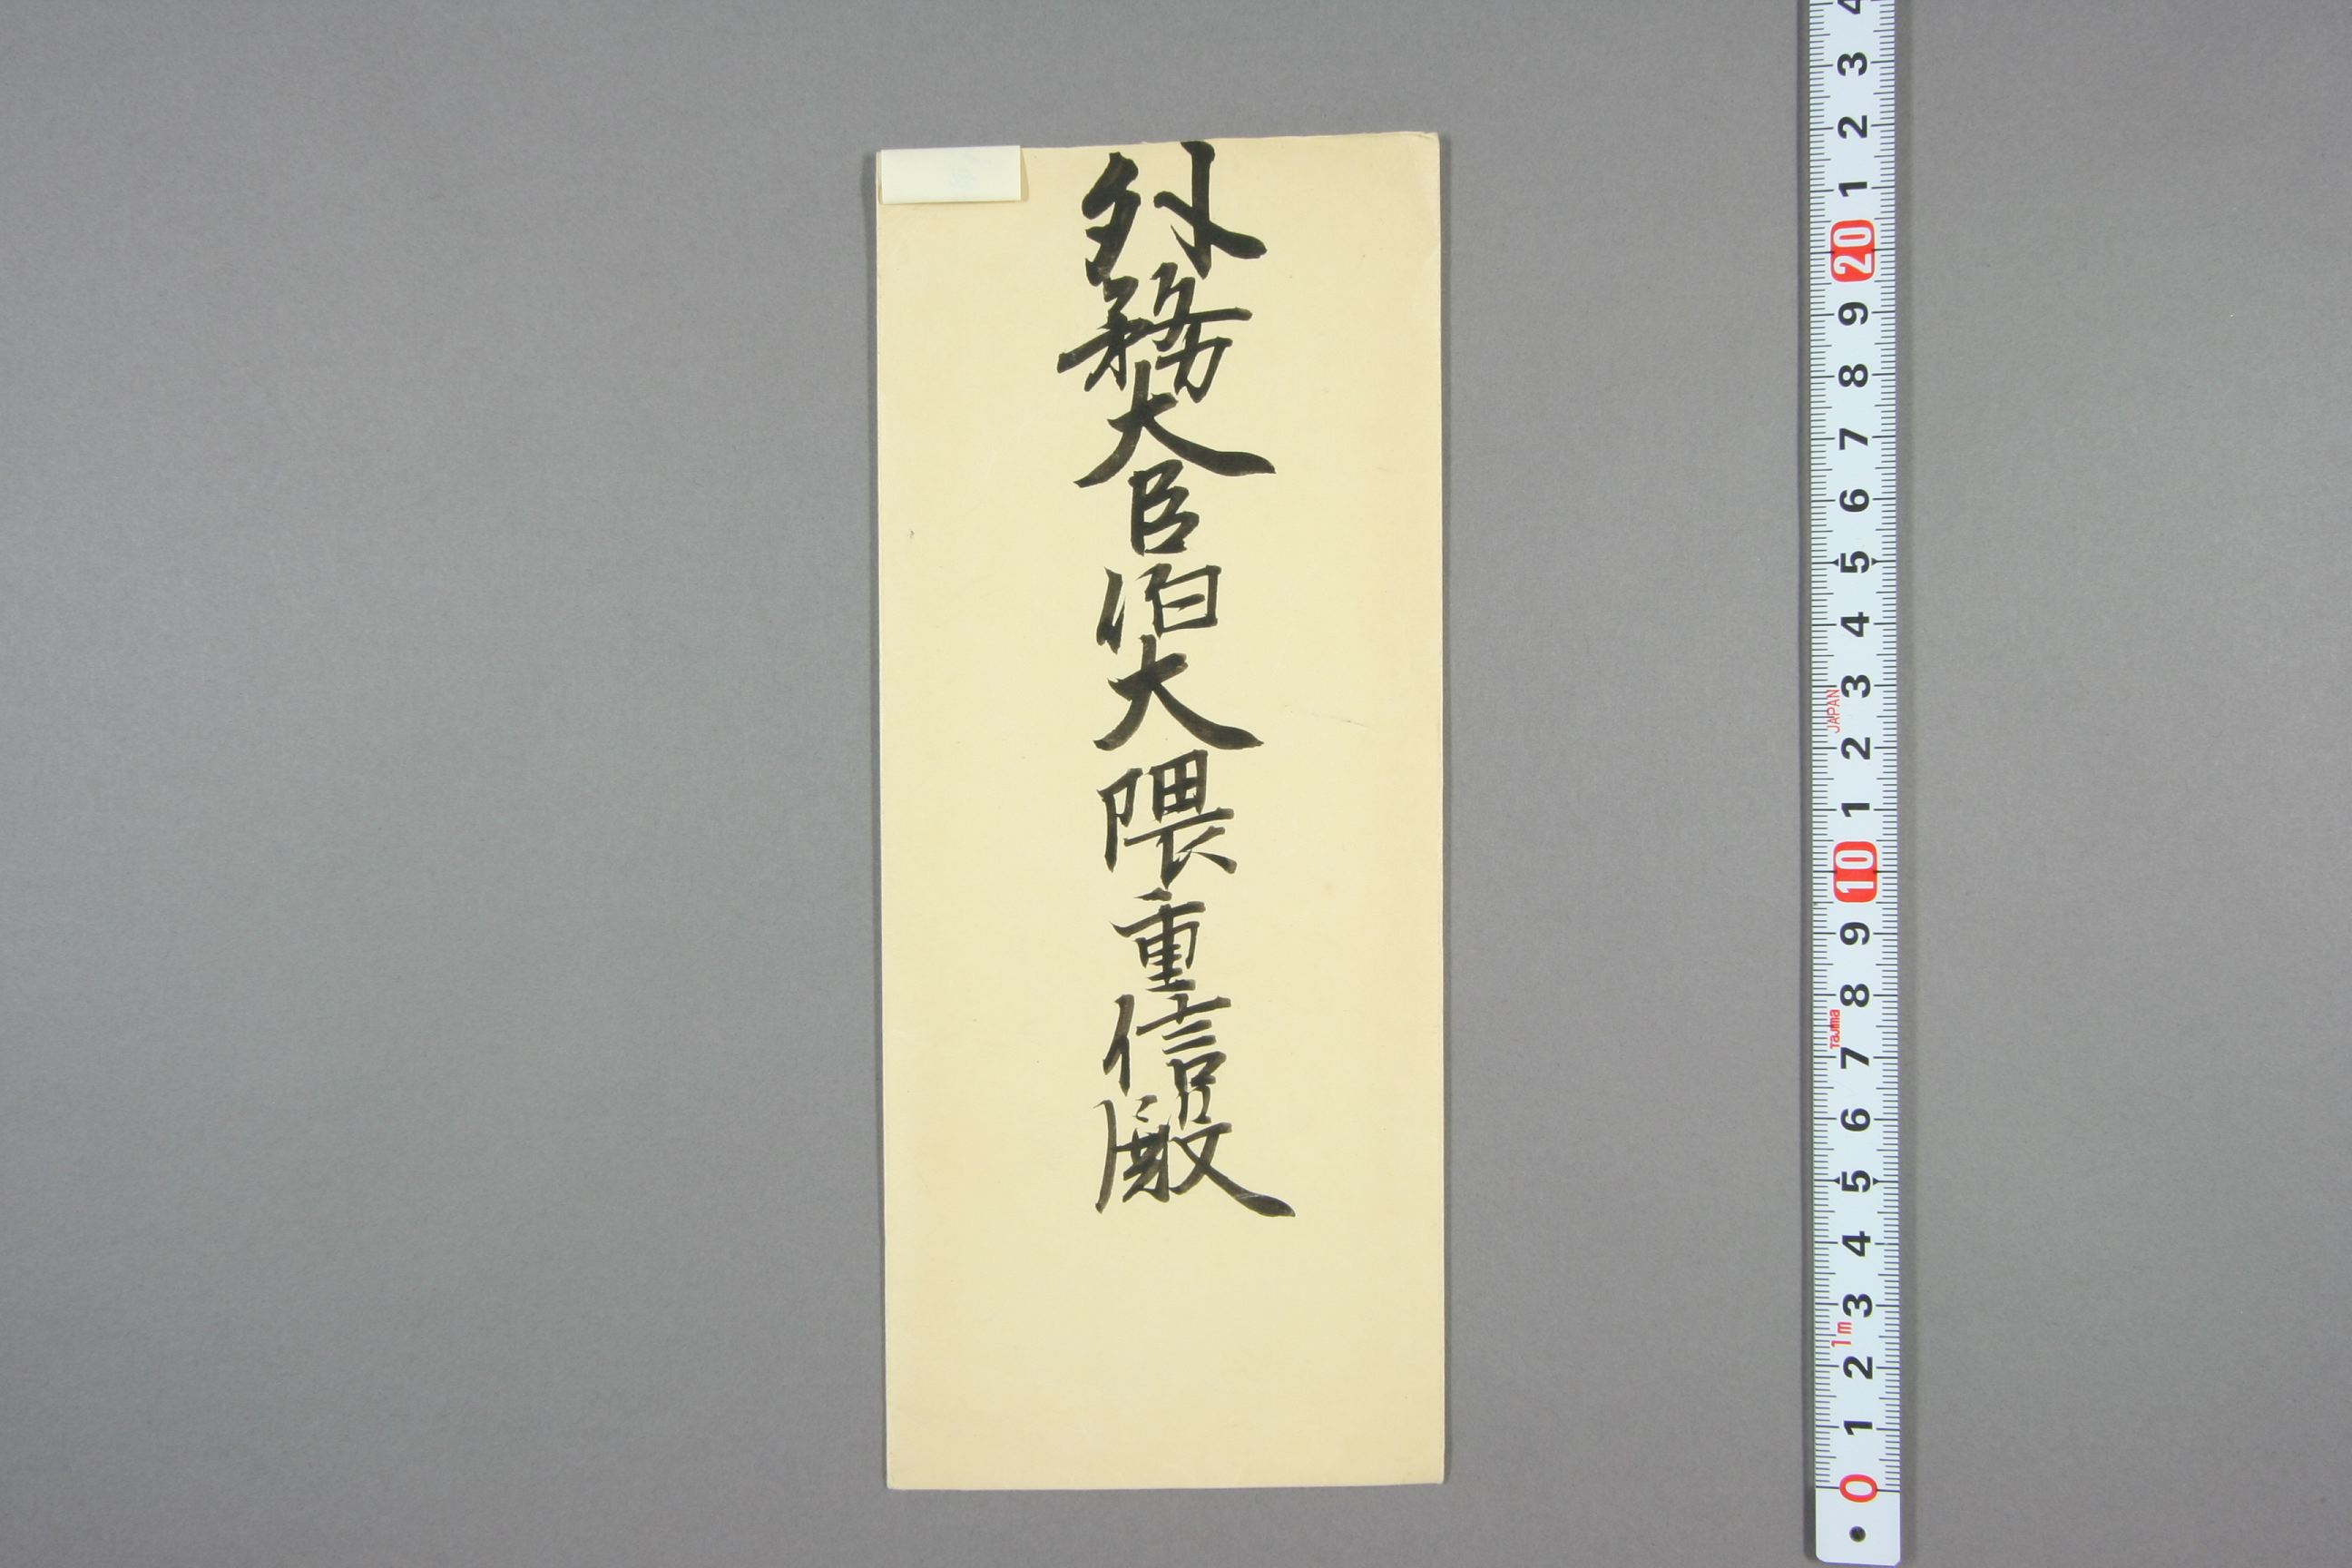 外務大臣伯大隈重信殿
4
3
2
1
20
9
8
7
6
5
4
3
JAPAN
2
1
10
9
8
Tajima
7
6
5
4
3
1m
2
1
0